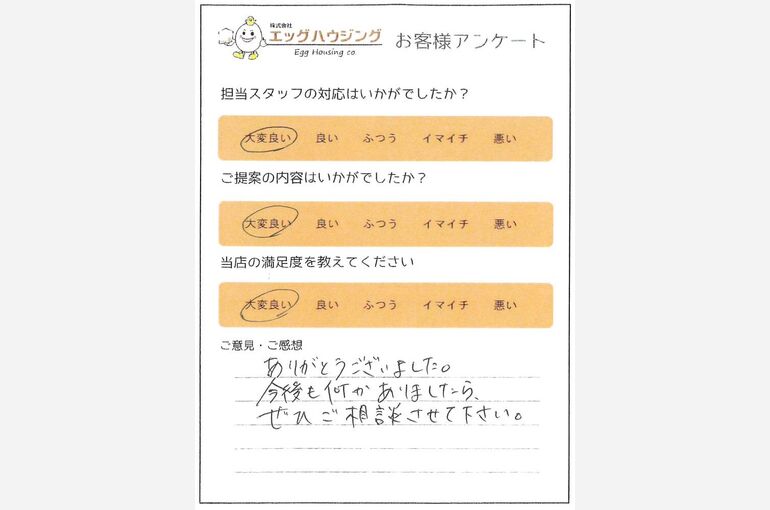 株式会社
エッグハウジング
Egg Housing co.
お客様アンケート
担当スタッフの対応はいかがでしたか？
大変良い 良い ふつう イマイチ 悪い
ご提案の内容はいかがでしたか？
大変良い 良い ふつう イマイチ 悪い
当店の満足度を教えてください
大変良い 良い ふつう イマイチ 悪い
ご意見・ご感想
ありがとうございました。
今後も何かありましたら、
ぜひご相談させて下さい。